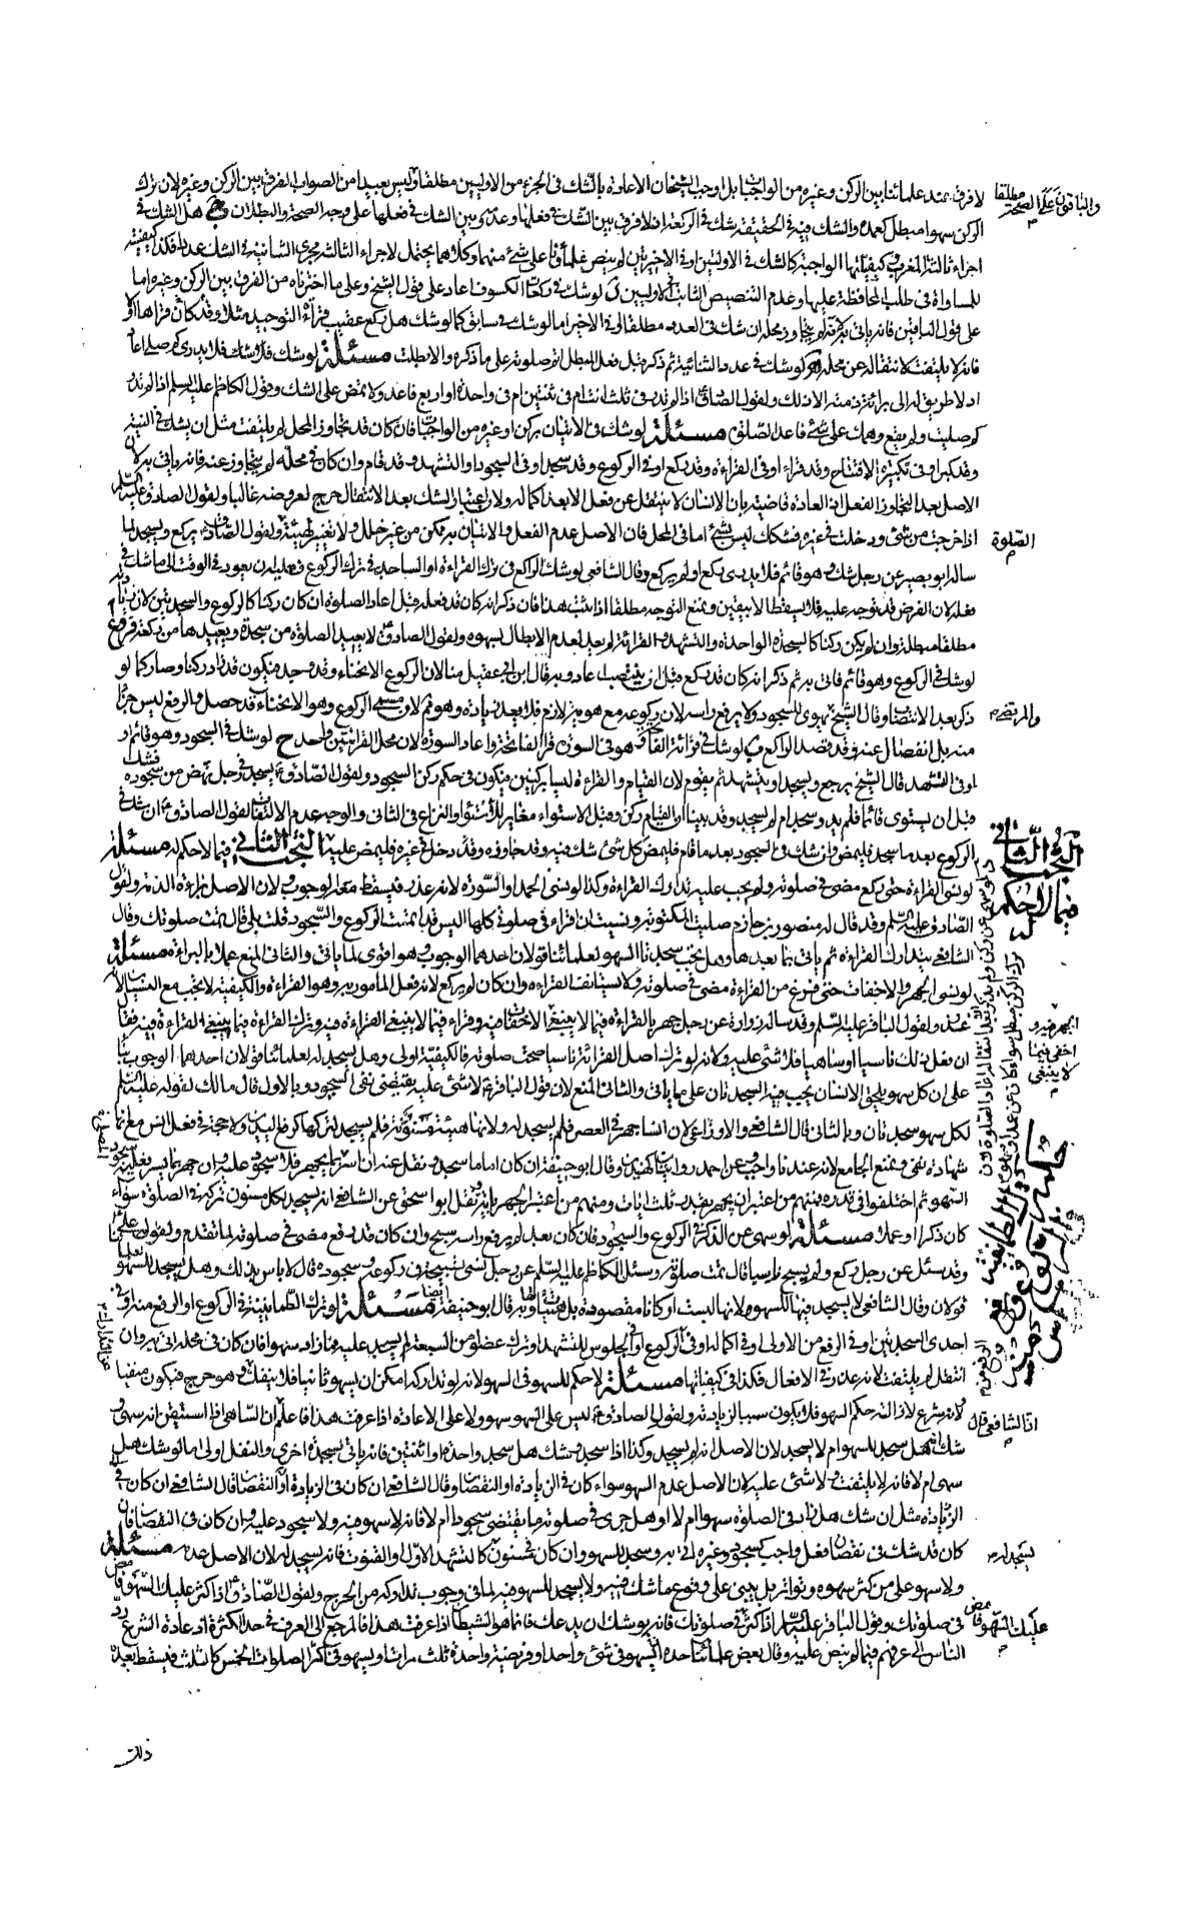 لا فرق عند علمائنا بين الركن وغيره من الواجبات بل اوجب الشيخان الاعادة بالشك فى الجزء من الاوليين مطلقا وليس بعيدا من الصواب الفرق بين الركن وغيره لان ترك
الركن سهوا مبطل كعمده والشك فيه فى الحقيقة شك فى الركعة اذ لا فرق بين الشك فى فعلها وعدمه وبين الشك فى فعلها على وجه الصحة والبطلان هل الشك فى
اجزاء ثالثة المغرب وكيفياتها الواجبة كالشك فى الاوليين او فى الاخيرتين لم ينص علماؤنا على شئ منهما وكلاهما يحتمل لاجراء الثالثة مجرى الثانية فى الشك عددا فكذا كيفية
للمساواة فى طلب المحافظة عليها وعدم التنصيص الثابت فى الاوليين لو شك فى ركعات الكسوف اعاد على قول الشيخ وعلى ما اخترناه من الفرق بين الركن وغيره اما
على قول الباقين فانه ياتى به
فانه لا يلتفت لانتقاله عن محله لو شك فى عدد الثنائية ثم ذكر قبل فعل المبطل اتم صلوته على ما ذكره والا بطلت مسئلة لو شك فلا يدرى كم صلى اعاد
اذ لا طريق له الى براءة ذمته الا ذلك ولقول الصادق اذا لم تدر فى ثلث انت ام فى ثنتين ام فى واحدة او اربع فاعد ولا تمض على الشك وقول الكاظم عليه السلم اذا لم تدر
كم صليت ولم يقع وهمك على شئ فاعد الصلوة مسئلة لو شك فى الاتيان بركن او غيره من الواجبات فان كان قد تجاوز المحل لم يلتفت مثل ان يشك فى النية
وقد كبر او فى تكبيرة الافتتاح وقد قراء او فى القراءة وقد ركع او فى الركوع وقد سجد او فى السجود او التشهد وقد قام وان كان فى محله لم يتجاوز عنه فانه ياتى به لان
الاصل بعد التجاوز الفعل اذ العادة قاضية بان الانسان لا ينتقل عن فعل الا بعد اكماله ولان اعتبار الشك بعد الانتقال حرج لعروضه غالبا ولقول الصادق عليه السلم
اذا خرجت من شئ ودخلت فى غيره فشكك ليس بشئ اما فى المحل فان الاصل عدم الفعل والاتيان به ممكن من غير خلل ولا تغيير لهيئة ولقول الصادق يركع ويسجد لما
ساله ابو بصير عن رجل شك وهو قائم فلا يدرى ركع او لم يركع وقال الشافعى لو شك الراكع فى ترك القراءة او الساجد فى ترك الركوع فعليه ان يعود فى الوقت الى ما شك فى
فعله لان الفرض قد توجه عليه فلا يسقط الا بيقين ونمنع التوجه مطلقا اذا ثبت هذا فان ذكر انه كان قد فعله قبل اعاد الصلوة ان كان ركنا كالركوع والسجدتين لان زيادته
مطلقا مبطلة وان لم يكن ركنا كالسجدة الواحدة والتشهد والقراءة لم يعد لعدم الابطال بسهوه ولقول الصادق لا يعيد الصلوة من سجدة ويعيدها من ركعة
لو شك فى الركوع وهو قائم فاتى به ثم ذكر انه كان قد ركع قبل ان ينتصب اعاد وبه قال ابن ابى عقيل منا لان الركوع الانحناء وقد وجد فيكون قد زاد ركنا وصار كما لو
ذكر بعد الانتصاب وقال الشيخ يهوى للسجود ولا يرفع راسه لان ركوعه مع هويه لازم فلا يعد زيادة وهو ممنوع لان مسمى الركوع وهو الانحناء قد حصل والرفع ليس جزأ
منه بل انفصال عنه وقد قصد الراكع لو شك فى قرائة الفاتحة وهو فى السورة قرا الفاتحة واعاد السورة لان محل القرائتين واحد لو شك فى السجود وهو قائم
او فى التشهد قال الشيخ يرجع ويسجد او يتشهد ثم يقوم لان القيام والقراءة ليسا بركنين فيكون فى حكم ركن السجود ولقول الصادق يسجد فى رجل نهض من سجوده فشك
قبل ان يستوى قائما فلم يدر سجد ام لم يسجد وقد بينا ان القيام ركن وقبل الاستواء مغاير للاستواء والنزاع فى الثانى والوجه عدم الالتفات لقول الصادق ان شك فى
الركوع بعد ما سجد فليمض وان شك فى السجود بعد ما قام فليمض كل شئ شك فيه وقد جاوزه وقد دخل فى غيره فليمض عليه البحث الثانى فيما لا حكم له مسئلة
لو نسى القراءة حتى ركع مضى فى صلوته ولم يجب عليه تدارك القراءة وكذا لو نسى الحمد او السورة لانه عذر فيسقط معه الوجوب ولان الاصل براءة الذمة ولقول
الصادق عليه السلم وقد قال له منصور بن حازم صليت المكتوبة ونسيت ان اقراء فى صلوتى كلها اليس قد اتممت الركوع والسجود قلت بلى قال تمت صلوتك وقال
الشافعى يتدارك القراءة ثم ياتى بما بعدها وهل تجب سجدتا السهو لعلمائنا قولان احدهما الوجوب وهو اقوى لما ياتى والثانى المنع عملا بالبراءة مسئلة
لو نسى الجهر والاخفات حتى فرغ من القراءة مضى فى صلوته ولا يستانف القراءة وان كان لم يركع لانه فعل المامور به وهو القراءة والكيفية لا تجب مع النسيان لانه
عذر ولقول الباقر عليه السلم وقد ساله زرارة عن رجل جهر بالقراءة فيما لا ينبغى الاخفات فيه وقراء فيما لا ينبغى القراءة فيه وترك القراءة فيما ينبغى القراءة فيه فقال
ان فعل ذلك ناسيا او ساهيا فلا شئ عليه ولانه لو ترك اصل القراءة ناسيا صحت صلوته فالكيفية اولى وهل يسجد له لعلمائنا قولان احدهما الوجوب بناء
على ان كل سهو يلحق الانسان يجب فيه السجدتان على ما ياتى والثانى المنع لان قول الباقر لا شئ عليه يقتضى نفى السجود وبالاول قال مالك لقوله عليه السلم
لكل سهو سجدتان وبالثانى قال الشافعى والاوزاعى لان انسا جهر فى العصر فلم يسجد له ولانها هيئة مسنونة فلم يسجد لتركها كرفع اليدين ولا حجة فى فعل انس مع انها
شهادة نفى ونمنع الجامع لانه عندنا واجب وعن احمد روايتان كهذين وقال ابو حنيفة ان كان اماما سجد ونقل عنه ان اسر بما يجهر فلا سجود عليه وان جهر بما يسر فعليه سجود
السهو ثم اختلفوا فى قدره فمنهم من اعتبر ان يجهر بقدر ثلث ايات ومنهم من اعتبر الجهر باية ونقل ابو اسحق عن الشافعى انه يسجد لكل مسنون تركه فى الصلوة سواء
كان ذكرا او عملا مسئلة لو سهى عن الذكر فى الركوع والسجود فان كان بعد لم يرفع راسه سبح وان كان قد رفع مضى فى صلوته لما تقدم ولقول على
وقد سئل عن رجل ركع ولم يسبح ناسيا قال تمت صلوته وسئل الكاظم عليه السلم عن رجل نسى تسبيحة فى ركوعه وسجوده قال لا باس بذلك وهل يسجد للسهو
قولان وقال الشافعى لا يسجد فيها للسهو لانها ليست اركانا مقصودة بل هيئات وبه قال ابو حنيفة مسئلة لو ترك الطمانينة فى الركوع او الرفع منه او فى
احدى السجدتين او فى الرفع من الاولى او فى اكمالها او فى الركوع او الجلوس للتشهد او ترك عضوا من السبعة لم يسجد عليه وما زاد سهوا فان كان فى محله اتى به وان
انتقل لم يلتفت لانه عذر فى الافعال فكذا فى كيفياتها مسئلة لا حكم للسهو فى السهو لانه لو تداركه امكن ان يسهو ثانيا فلا ينفك وهو حرج فيكون منفيا
ولانه شرع لازالة حكم السهو فلا يكون سببا لزيادته ولقول الصادق ليس على السهو سهو ولا على الاعادة اعادة اذا عرفت هذا فاعلم ان الساهى اذا استيقن انه سهى و
شك انه هل سجد للسهو ام لا يسجد لان الاصل انه لم يسجد وكذا اذا سجد وشك هل سجد واحدة او اثنتين فانه ياتى بسجدة اخرى والنقل اولى اما لو شك هل
سهى ام لا فانه لا يلتفت ولا شئ عليه لان الاصل عدم السهو سواء كان فى الزيادة او النقصان وقال الشافعى ان كان فى الزيادة او النقصان قال الشافعى ان كان فى
الزيادة مثل ان شك هل زاد فى الصلوة سهوا ام لا او هل جرى فى صلوته ما يقتضى سجودا ام لا فانه لا سهو فيه ولا سجود عليه وان كان فى النقصان فان
كان قد شك فى نقصان فعل واجب كسجود وغيره اتى به وسجد للسهو وان كان فى مسنون كالتشهد الاول والقنوت فانه يسجد له لان الاصل عدمه مسئلة
ولا سهو على من كثر سهوه وتواتر بل يبنى على وقوع ما شك فيه ولا يسجد للسهو فيه لما فى وجوب تداركه من الحرج ولقول الصادق اذا كثر عليك السهو فامض
فى صلوتك وقول الباقر عليه السلم اذا كثر فى صلوتك فانه يوشك ان يدعك فانما هو الشيطان اذا عرفت هذا فالمرجع الى العرف فى حد الكثرة اذ عادة الشرع رد
الناس الى عرفهم فيما لم ينص عليه وقال بعض علمائنا حده ان يسهو فى شئ واحد او فريضة واحدة ثلث مرات او يسهو فى اكثر الصلوات الخمس كالثلث فيسقط بعد
ذلك
والباقون على الصحة مطلقا
الصلوة
البحث الثانى
فيما لا حكم
له
الجهر فيه و
اخفى فيما
لا ينبغى
اذا الشافعى قال
يسجد له
عليك السهو فامض